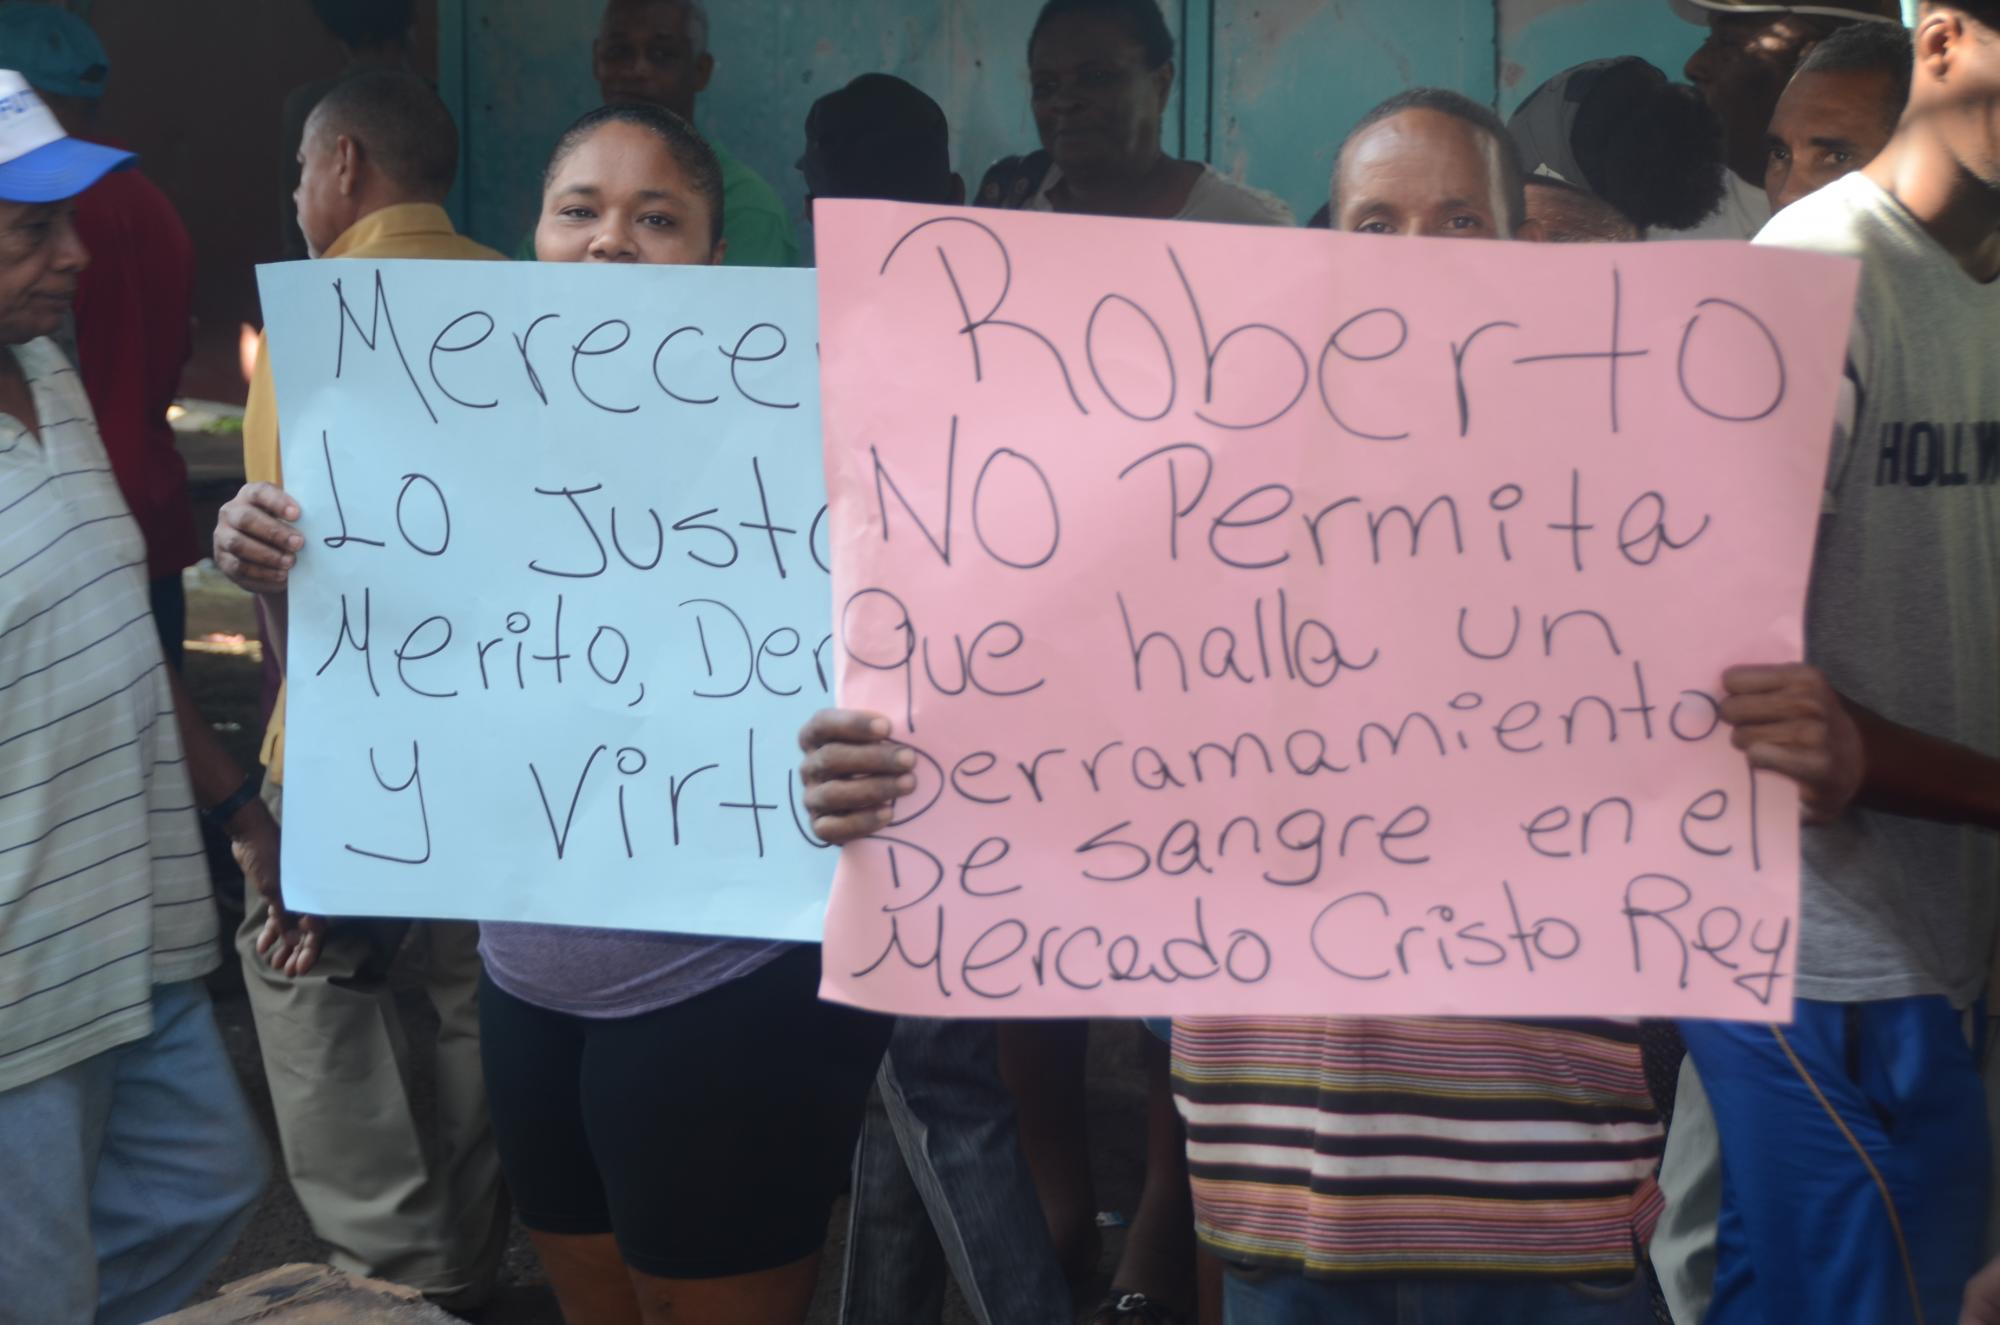 Merece
Lo Justo
Merito, Der
y Virtu
Roberto
NO Permita
Que halla un
Derramamiento
De sangre en el
Mercado Cristo Rey
HOLLYW